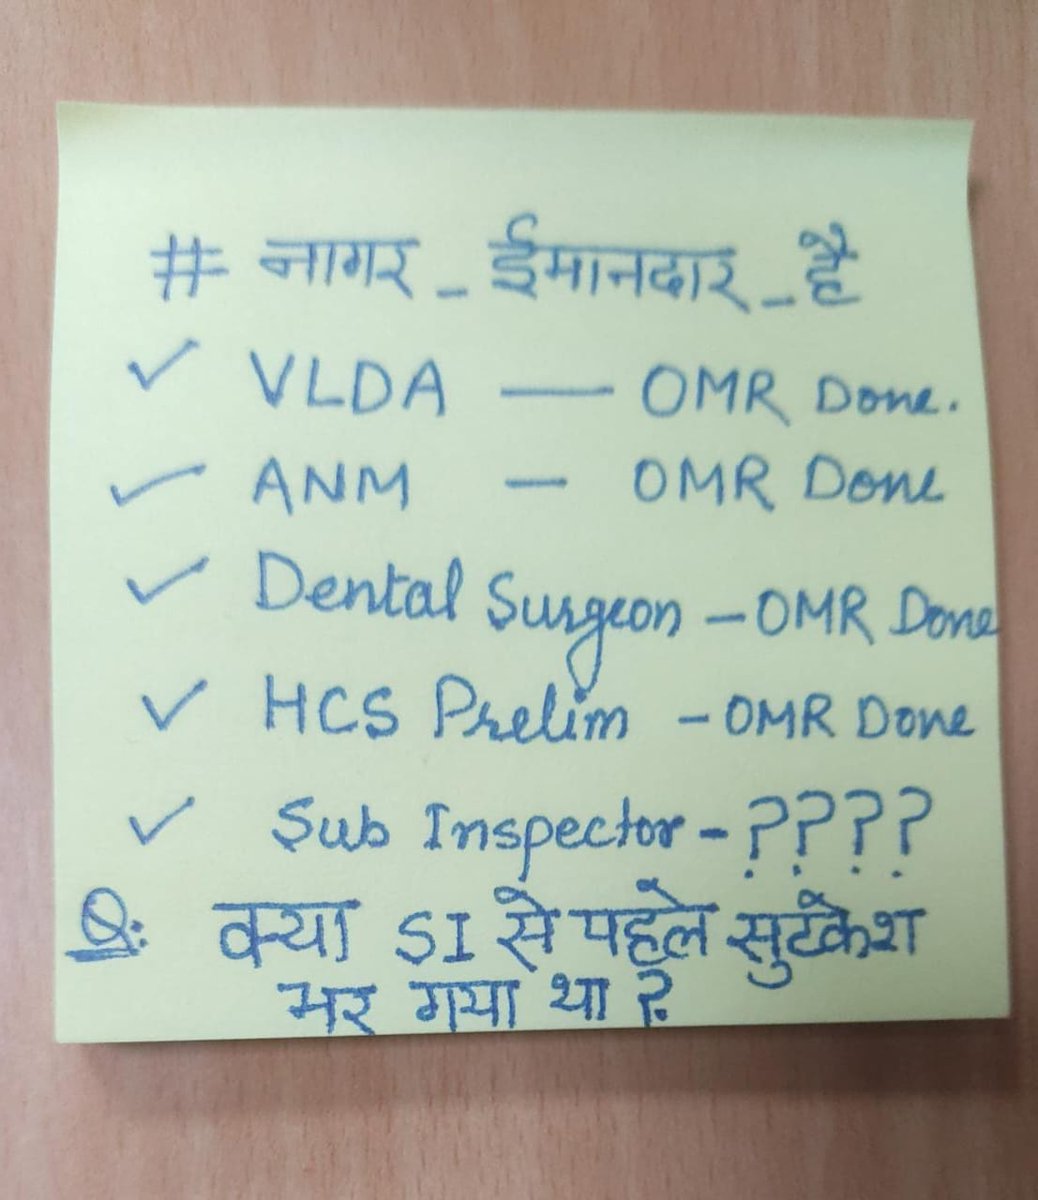 # नागर_ईमानदार_है
✓ VLDA — OMR Done.
✓ ANM — OMR Done
✓ Dental Surgeon – OMR Done
✓ HCS Prelim – OMR Done
✓ Sub Inspector - ????
Q: क्या SI से पहले सुटकेश
भर गया था ?